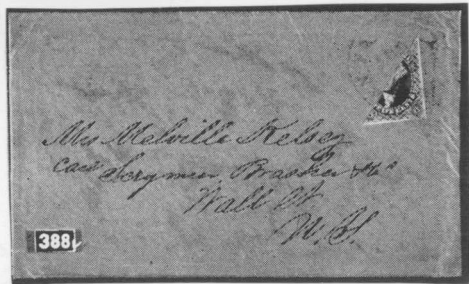 Mrs Melville Kelsey
care Scrymser, Brasher & Co
Wall St
N. Y.
388